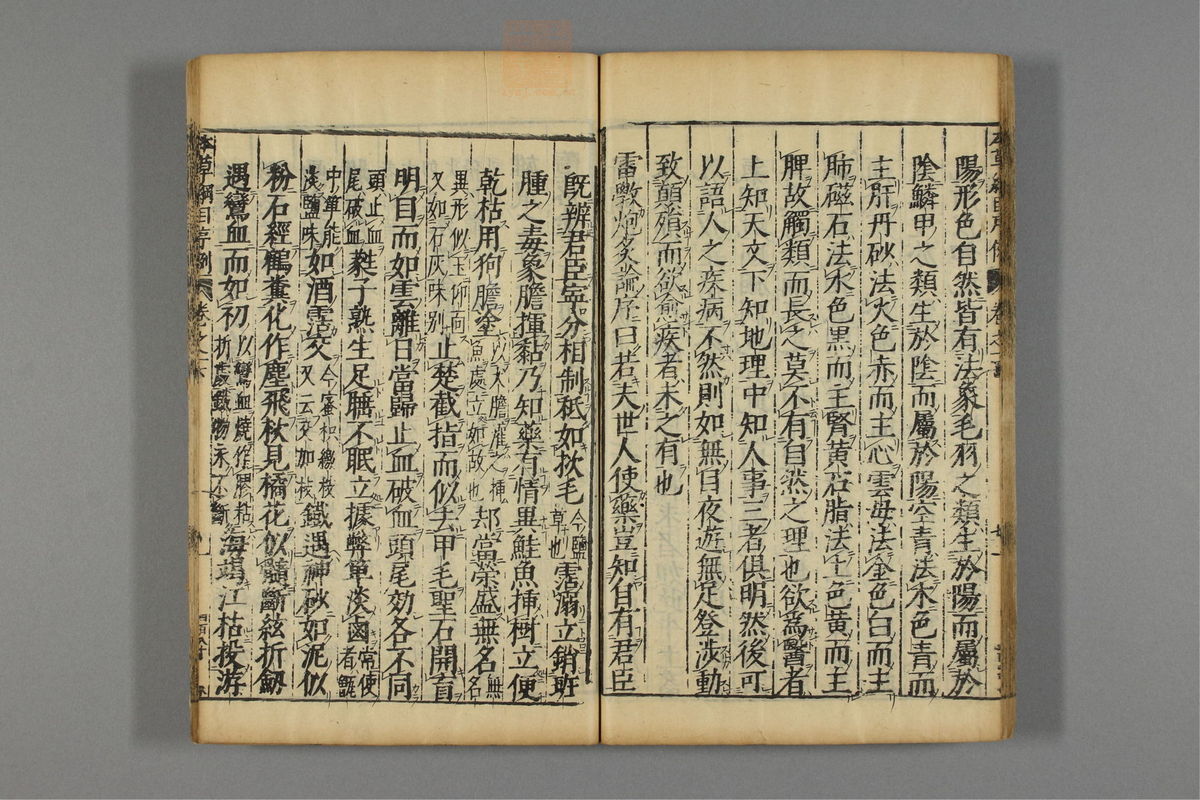 陽形色自然皆有法象毛羽之類生於陽而屬於
陰鱗甲之類生於陰而屬於陽空青法木色青而
主肝丹砂法火色赤而主心雲母法金色白而主
肺磁石法水色黑而主腎黃石脂法土色黃而主
脾故觸類而長之莫不有自然之理也欲為醫者
上知天文下知地理中知人事三者俱明然後可
以語人之疾病不然則如無目夜遊無足登涉動
致顛殞而欲愈疾者未之有也
雷斅炮炙論序曰若夫世人使藥豈知自有君臣
既辨君臣寧分相制秖如𣏌毛今鹽草也霑溺立銷班
腫之毒象膽揮黏乃知藥有情異鮭魚插樹立便
乾枯用狗膽塗以犬膽灌之插魚處立如故也却當榮盛無名無名
異形似玉仰面又如石灰味别止楚截指而似去甲毛聖石開盲
明目而如雲離日當歸止血破血頭尾効各不同
頭止血尾破血蕤子熟生足睡不眠立據弊箄淡鹵常使者甑
中箄能淡鹽味如酒霑交今蜜枳繳枝又云交加枝鐵遇神砂如泥似
粉石經鶴糞化作塵飛𣏌見橘花似髓斷絃折劒
遇鸞血而如初以鸞血煉作膠粘折處鐵物永不斷海竭江枯投游